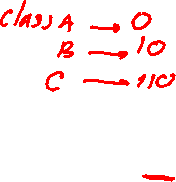 class A → 0
B → 10
C → 110